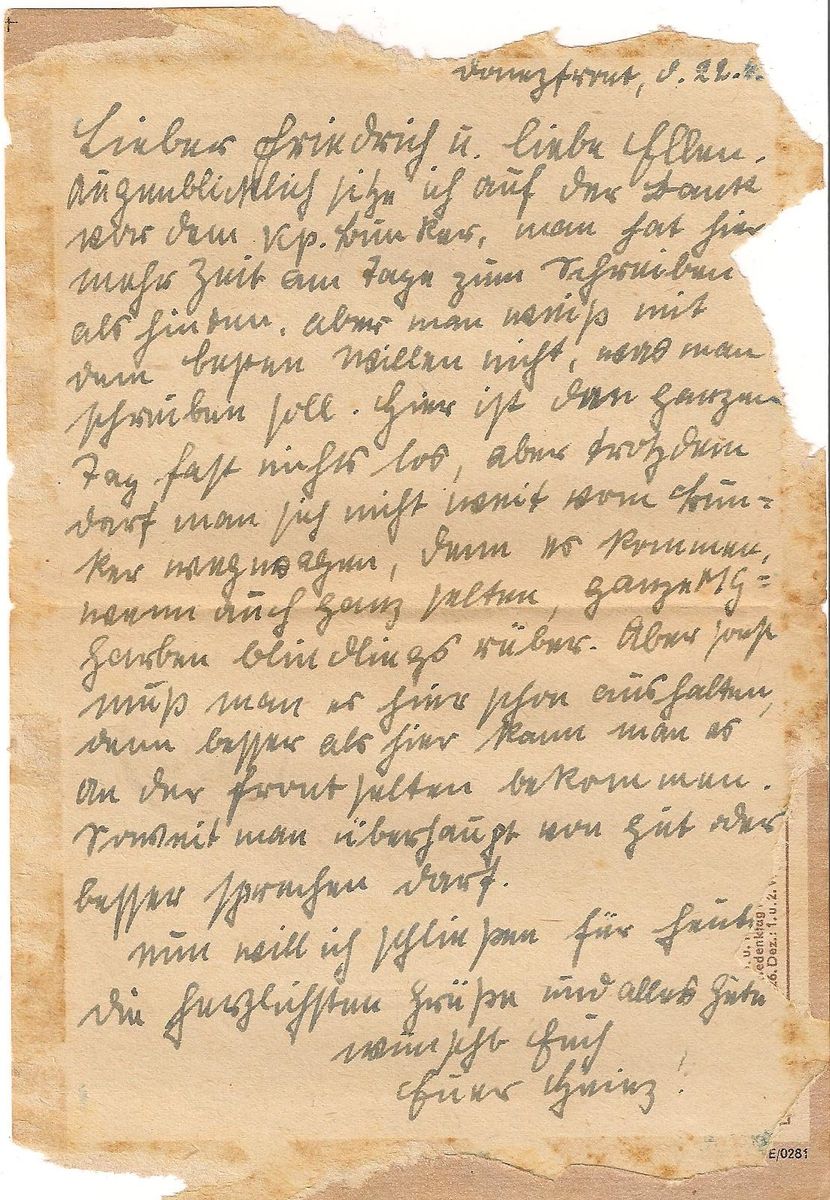 Donezfront, d. 22.
Lieber Friedrich u. liebe Ellen.
Augenblicklich sitze ich auf der Bank
vor dem Kp. Bunker, man hat hier
mehr Zeit am Tage zum Schreiben
als hinten. Aber man weiß mit
dem besten Willen nicht, was man
schreiben soll. Hier ist den ganzen
Tag fast nichts los, aber trotzdem
darf man sich nicht weit vom Bun=
ker wegwagen, denn es kommen,
wenn auch ganz selten, ganze MG=
Garben blindlings rüber. Aber sonst
muß man es hier schon aushalten,
denn besser als hier kann man es
an der Front selten bekommen.
Soweit man überhaupt von gut oder
besser sprechen darf.
Nun will ich schließen für heute
die herzlichsten Grüße und alles Gute
wünscht Euch
Euer Heinz!
u. 1
iedenktag
26. Dez.: 1. u. 2. W
E/0281